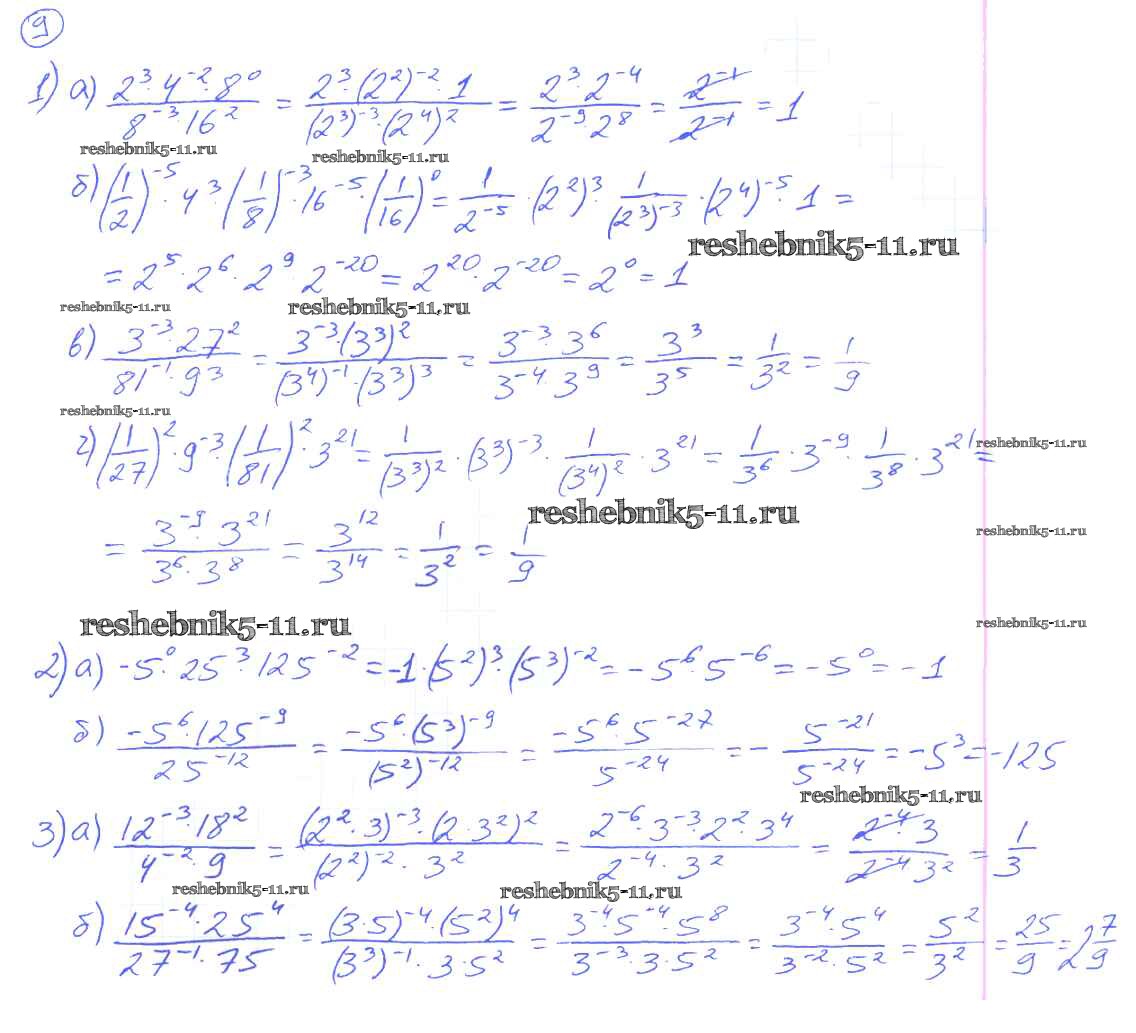 9
1) а) (2³·4⁻²·8⁰)/(8⁻³·16²) = (2³·(2²)⁻²·1)/((2³)⁻³·(2⁴)²) = (2³·2⁻⁴)/(2⁻⁹·2⁸) = 2⁻¹/2⁻¹ = 1
reshebnik5-11.ru reshebnik5-11.ru
б) (1/2)⁻⁵·4³·(1/8)⁻³·16⁻⁵·(1/16)⁰ = 1/2⁻⁵·(2²)³·1/(2³)⁻³·(2⁴)⁻⁵·1 =
reshebnik5-11.ru
= 2⁵·2⁶·2⁹·2⁻²⁰ = 2²⁰·2⁻²⁰ = 2⁰ = 1
reshebnik5-11.ru reshebnik5-11.ru
в) (3⁻³·27²)/(81⁻¹·9³) = (3⁻³·(3³)²)/((3⁴)⁻¹·(3³)³) = (3⁻³·3⁶)/(3⁻⁴·3⁹) = 3³/3⁵ = 1/3² = 1/9
reshebnik5-11.ru
г) (1/27)²·9⁻³·(1/81)²·3²¹ = 1/(3³)²·(3³)⁻³·1/(3⁴)²·3²¹ = 1/3⁶·3⁻⁹·1/3⁸·3²¹ =
reshebnik5-11.ru
reshebnik5-11.ru
= (3⁻⁹·3²¹)/(3⁶·3⁸) = 3¹²/3¹⁴ = 1/3² = 1/9
reshebnik5-11.ru
reshebnik5-11.ru reshebnik5-11.ru
2) а) -5⁰·25³·125⁻² = -1·(5²)³·(5³)⁻² = -5⁶·5⁻⁶ = -5⁰ = -1
б) (-5⁶·125⁻⁹)/(25⁻¹²) = (-5⁶·(5³)⁻⁹)/((5²)⁻¹²) = (-5⁶·5⁻²⁷)/(5⁻²⁴) = - 5⁻²¹/5⁻²⁴ = -5³ = -125
reshebnik5-11.ru
3) а) (12⁻³·18²)/(4⁻²·9) = ((2²·3)⁻³·(2·3²)²)/((2²)⁻²·3²) = (2⁻⁶·3⁻³·2²·3⁴)/(2⁻⁴·3²) = (2⁻⁴·3)/(2⁻⁴3²) = 1/3
reshebnik5-11.ru reshebnik5-11.ru
б) (15⁻⁴·25⁴)/(27⁻¹·75) = ((3·5)⁻⁴·(5²)⁴)/((3³)⁻¹·3·5²) = (3⁻⁴·5⁻⁴·5⁸)/(3⁻³·3·5²) = (3⁻⁴·5⁴)/(3⁻²·5²) = 5²/3² = 25/9 = 2 7/9